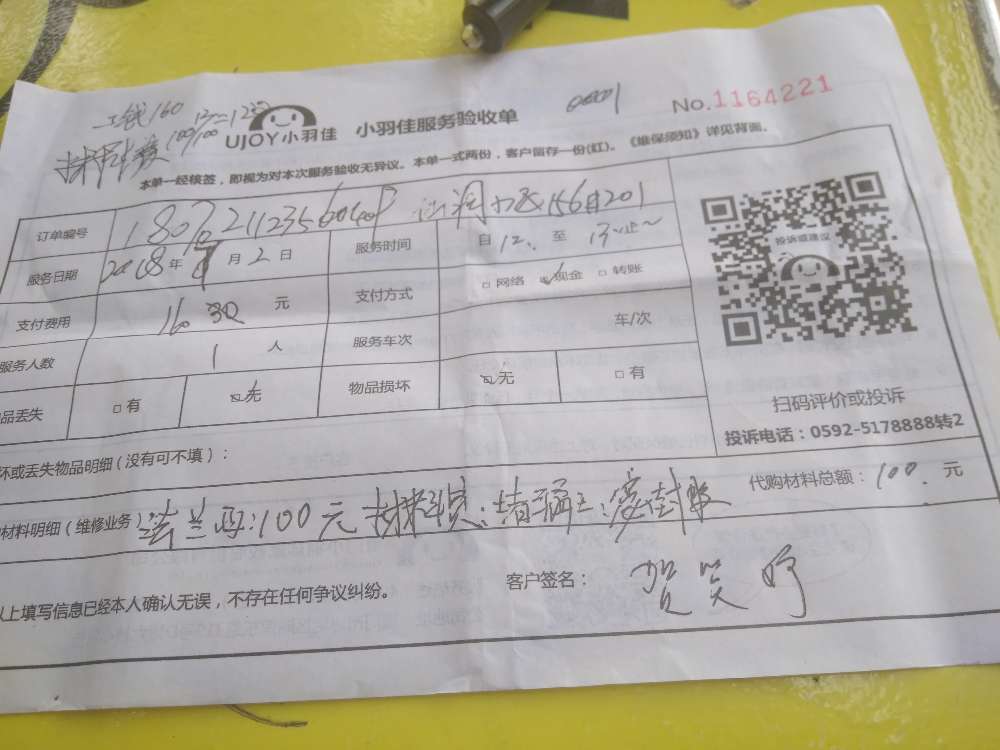 工钱160
材料费100
UJOY小羽佳 小羽佳服务验收单
No.1164221
本单一经核签，即视为对本次服务验收无异议。本单一式两份，客户留存一份(红)。《维保须知》详见背面。
订单编号
服务日期 2018年 月2日 服务时间 自12: 至13
支付费用 160 元 支付方式 □网络 现金 □转账
服务人数 1人 服务车次 车/次
品丢失 □有 无 物品损坏 无 □有
投诉或建议
扫码评价或投诉
投诉电话：0592-5178888转2
坏或丢失物品明细（没有可不填）：
材料明细（维修业务） 法兰 :100元 材料费: 密封胶 代购材料总额：100.元
以上填写信息已经本人确认无误，不存在任何争议纠纷。 客户签名：贺笑婷